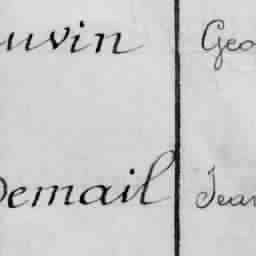 uvin Geo
Demail Jean